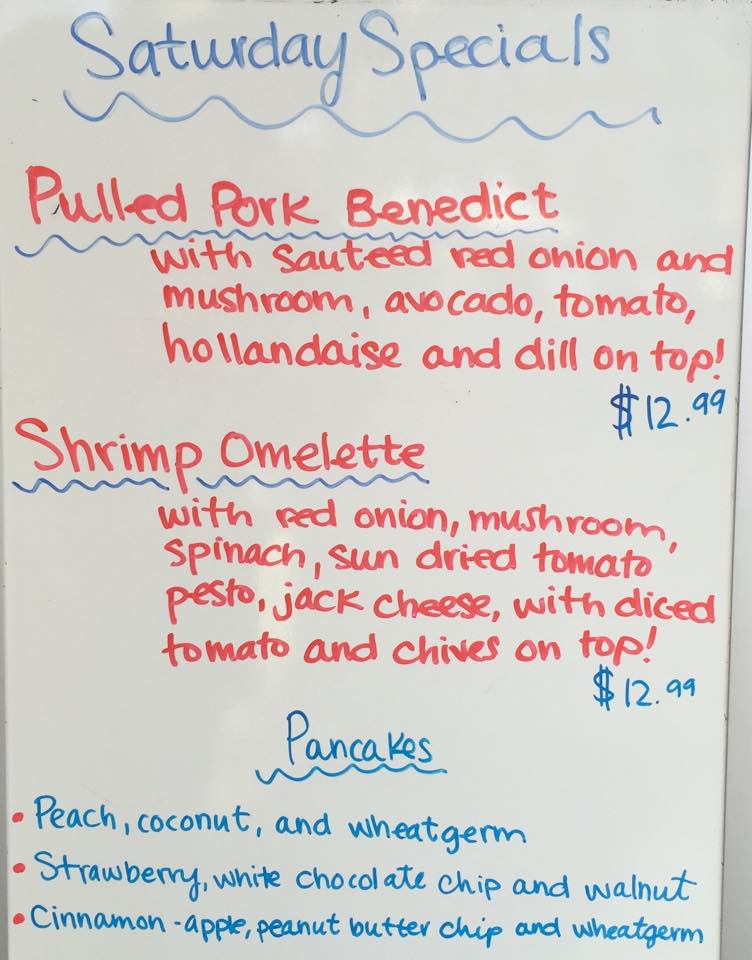 Saturday Specials
Pulled Pork Benedict
with sauteed red onion and
mushroom, avocado, tomato,
hollandaise and dill on top!
$12.99
Shrimp Omelette
with red onion, mushroom,
spinach, sun dried tomato
pesto, jack cheese, with diced
tomato and chives on top!
$12.99
Pancakes
• Peach, coconut, and wheatgerm
• Strawberry, white chocolate chip and walnut
• Cinnamon-apple, peanut butter chip and wheatgerm